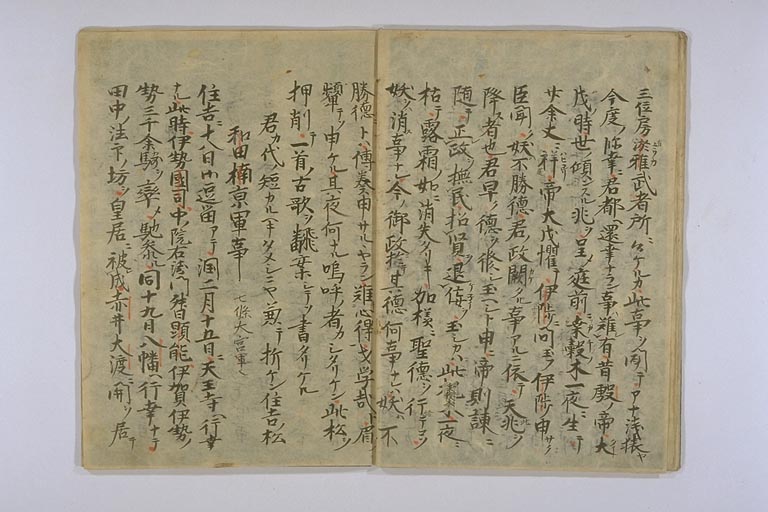 三位房淡雅武者所ニ候ケルカ此事ヲ聞テアナ浅猿ヤ
今度ノ臨幸ニ君都ヘ還幸ナラン事難有昔殷ノ帝大
戊時世ノ傾ンスル兆ヲ呈メ庭前ニ桑穀木一夜ニ生テ
廿余丈ニ祥帝大戊懼テ伊陟ニ問玉フ伊陟申サク
臣聞ク妖不勝德君ノ政闕クル事アルニ依テ天兆ヲ
降ス者也君早ク德ヲ修玉ヘシト申ニ帝則諫ニ
随テ正政ヲ撫民招賢退佞玉シカハ此桑木一夜ニ
枯テ露霜ノ如ニ消失タリキ加様ニ聖德ヲ行テコソ
妖ヲハ消事ナレ今ノ御政道其德何事ナレハ妖ノ不
勝德トハ傳奏申サルヤラン難心得戈学哉ト眉ヲ
顰テソ申ケル其夜何ナル嗚呼ノ者カシタリケン此松ヲ
押削テ一首ノ古歌ヲ翻案シテソ書タリケル
君カ代ノ短カルヘキタメシニヤ兼テ折ケン住吉ノ松
和田楠京軍事 七條大宮軍ヘ
住吉ニ十八日御逗留アテ潤二月十五日ニ天王寺ヘ行幸
ナル此時伊勢國司中院右衛門督顕能伊賀伊勢ノ
勢三千余騎ヲ率メ馳参ル同十九日八幡ヘ行幸ナテ
田中ノ法下ノ坊ヲ皇居ニ被成赤井大渡ニ開ヲ居テ